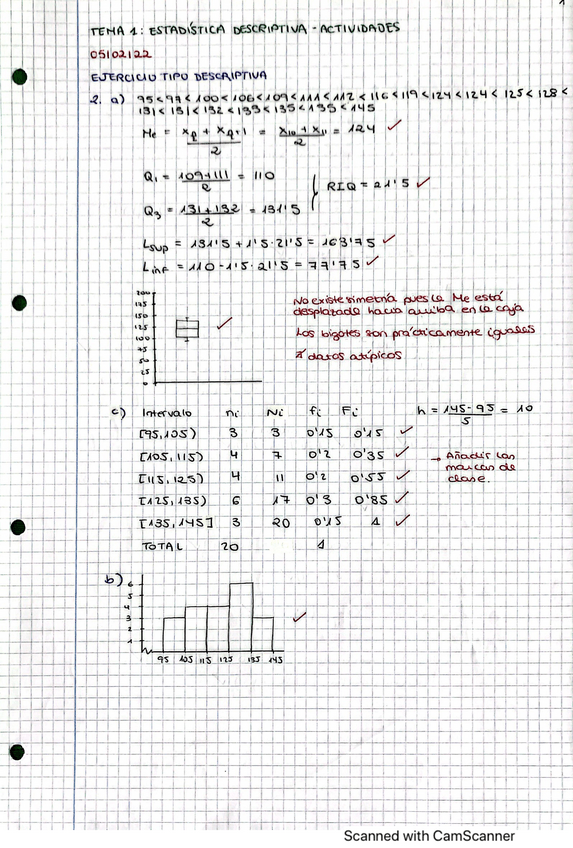 1
TEMA 1: ESTADÍSTICA DESCRIPTIVA - ACTIVIDADES
05|02|22
EJERCICIO TIPO DESCRIPTIVA
2. a) 95<97<100<106<109<111<112<116<119<124<124<125<128<
131<131<132<133<135<135<145
Me = xp + xp+1 / 2 = x10 + x11 / 2 = 124 ✓
Q1 = 109+111 / 2 = 110
RIQ = 21'5 ✓
Q3 = 131+132 / 2 = 131'5
Lsup = 131'5 + 1'5·21'5 = 163'75 ✓
Linf = 110 - 1'5·21'5 = 77'75 ✓
200
175
150
125
100
75
50
25
0
✓
No existe simetría pues la Me está
desplazada hacia arriba en la caja
Los bigotes son prácticamente iguales
∄ datos atípicos
c) Intervalo ni Ni fi Fi h = 145-95 / 5 = 10
[95,105) 3 3 0'15 0'15 ✓
[105,115) 4 7 0'2 0'35 ✓
[115,125) 4 11 0'2 0'55 ✓
[125,135) 6 17 0'3 0'85 ✓
[135,145] 3 20 0'15 1 ✓
TOTAL 20 1
→ Añadir las
marcas de
clase.
b)
6
5
4
3
2
1
95 105 115 125 135 145
✓
Scanned with CamScanner